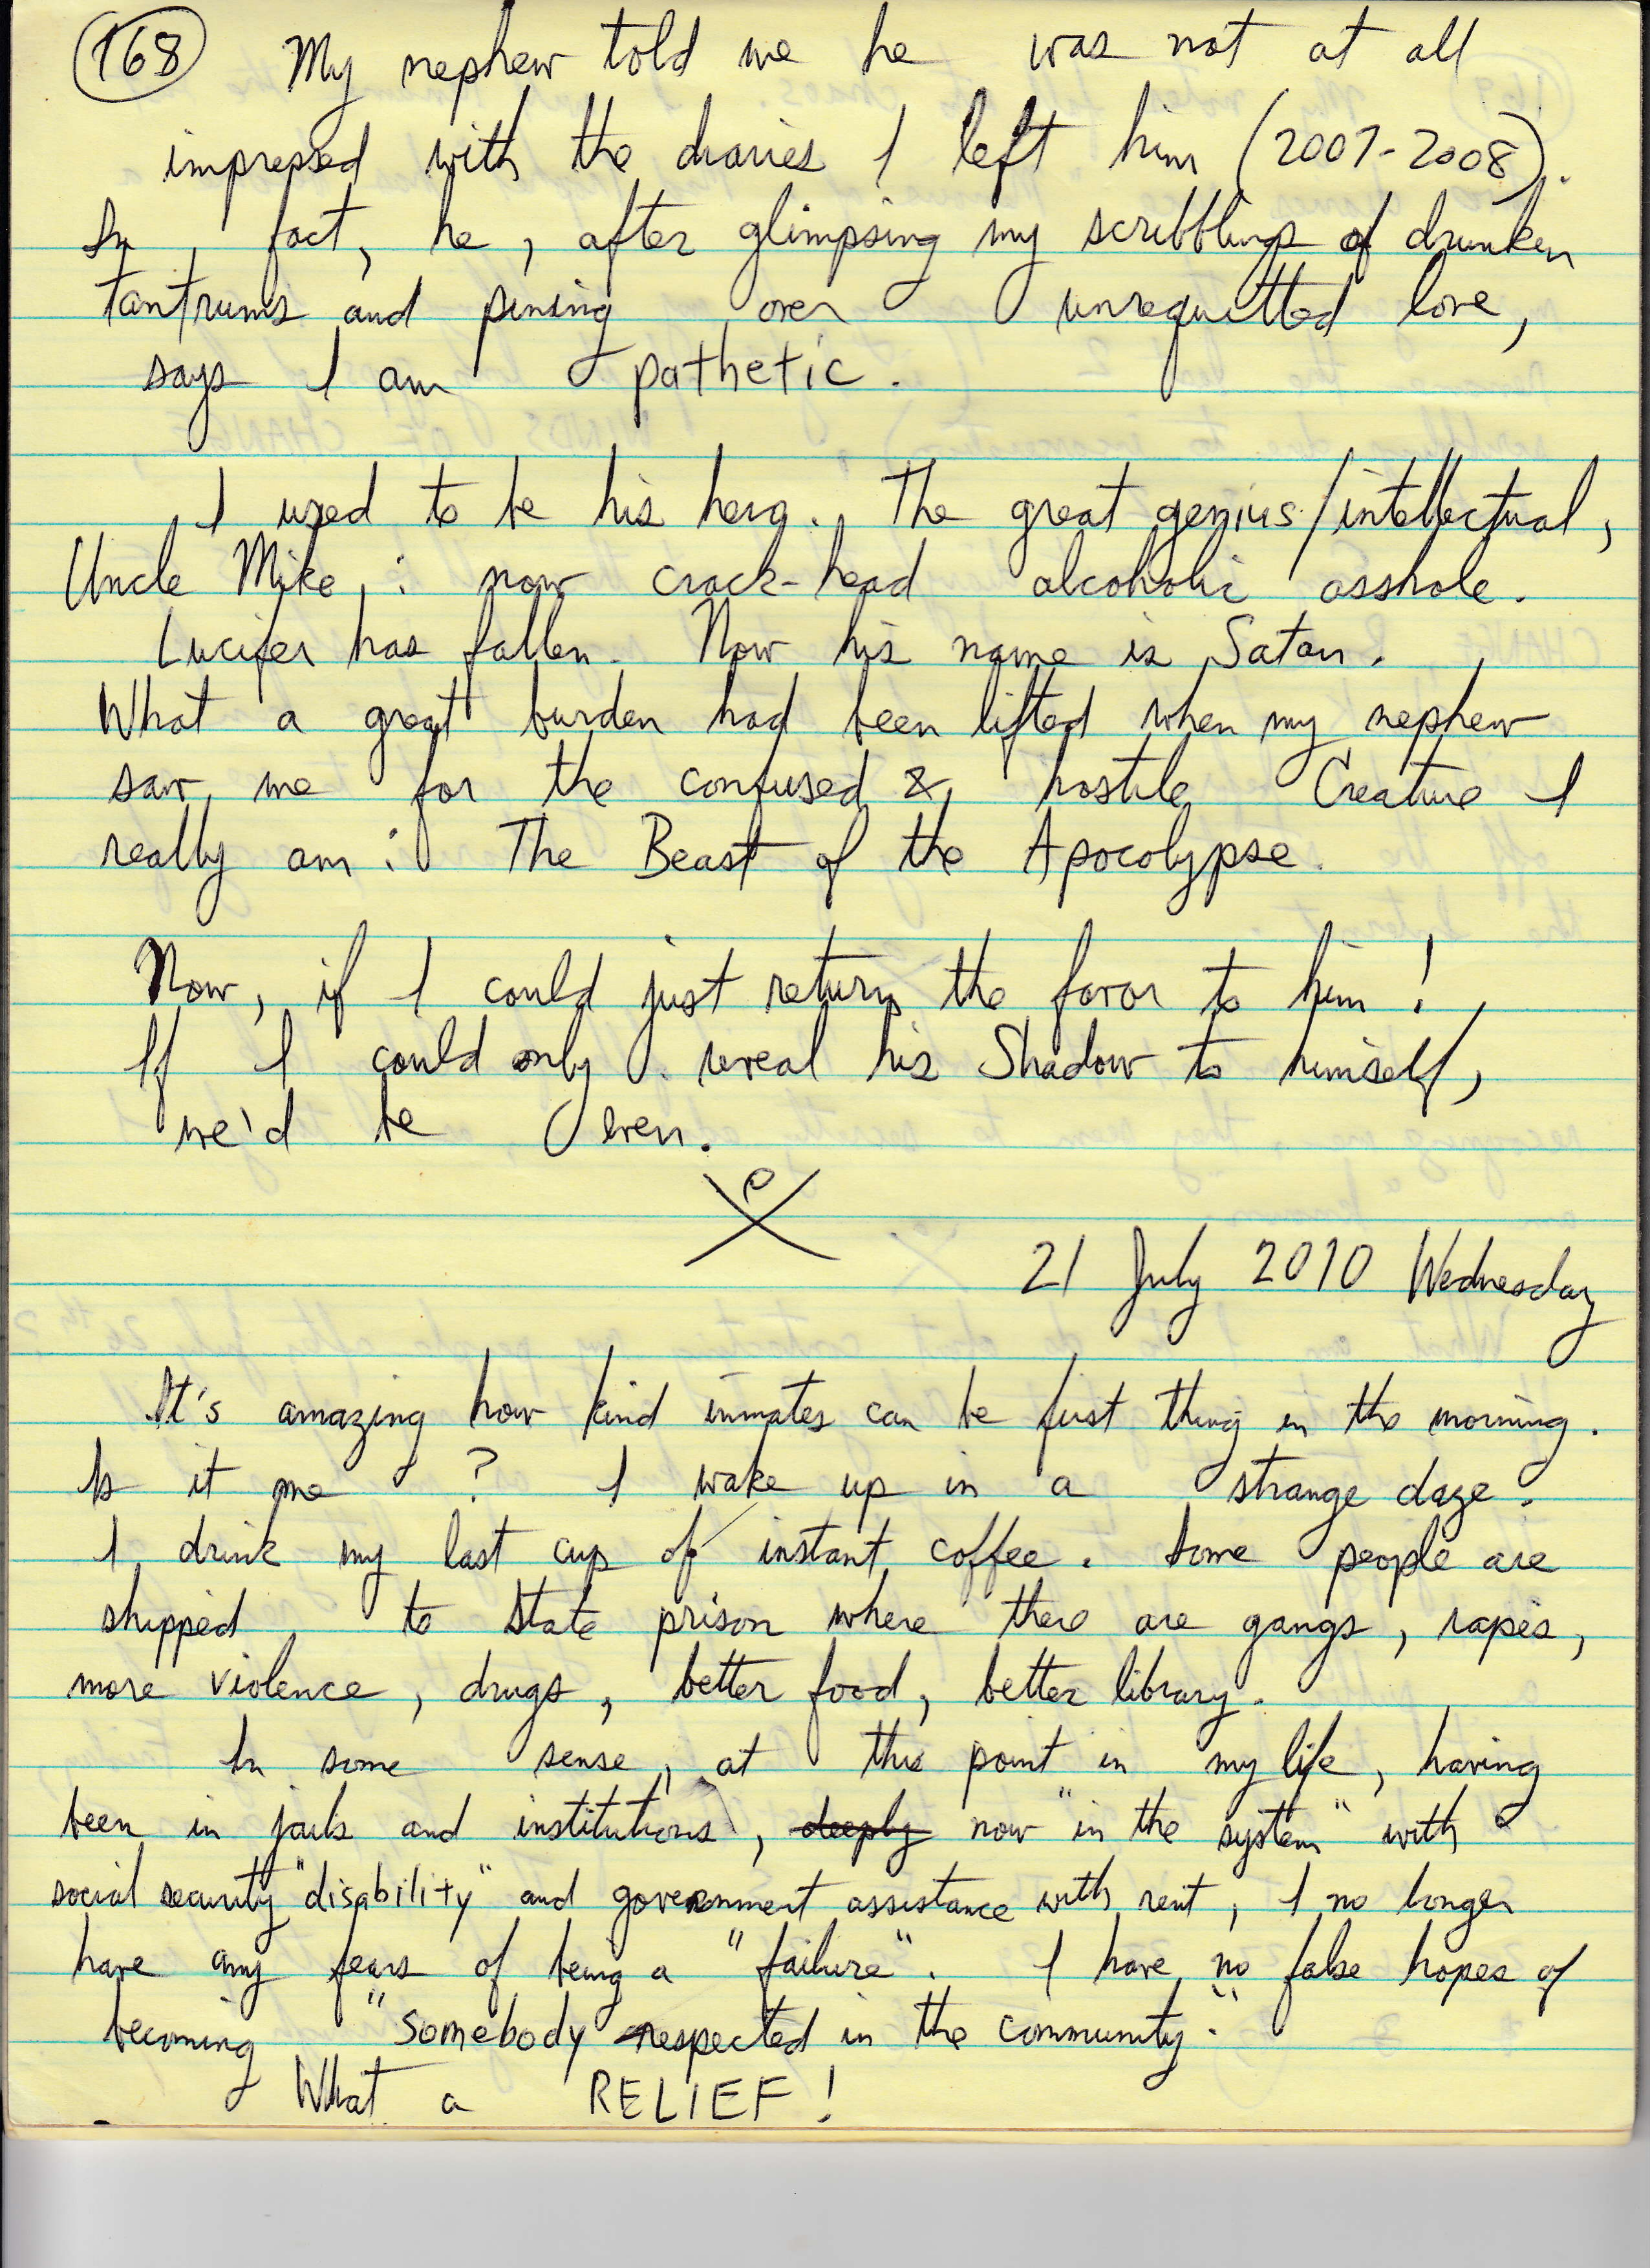 168 My nephew told me he was not at all
impressed with the diaries I left him (2007-2008).
In fact, he, after glimpsing my scribblings of drunken
tantrums and pining over unrequitted love,
says I am pathetic.
I used to be his hero. The great genius/intellectual,
Uncle Mike, : now crack-head alcoholic asshole.
Lucifer has fallen. Now his name is Satan.
What a great burden had been lifted when my nephew
saw me for the confused & hostile Creature I
really am: The Beast of the Apocolypse.
Now, if I could just return the favor to him!
If I could only reveal his Shadow to himself,
we'd be even.
21 July 2010 Wednesday
It's amazing how kind inmates can be first thing in the morning.
Is it me ? I wake up in a strange daze.
I drink my last cup of instant coffee. Some people are
shipped to State prison where there are gangs, rapes,
more violence, drugs, better food, better library.
In some sense, at this point in my life, having
been in jails and institutions, deeply now "in the system" with
social security "disability" and government assistance with rent, I no longer
have any fears of being a "failure". I have no false hopes of
becoming "somebody respected in the community."
What a RELIEF!